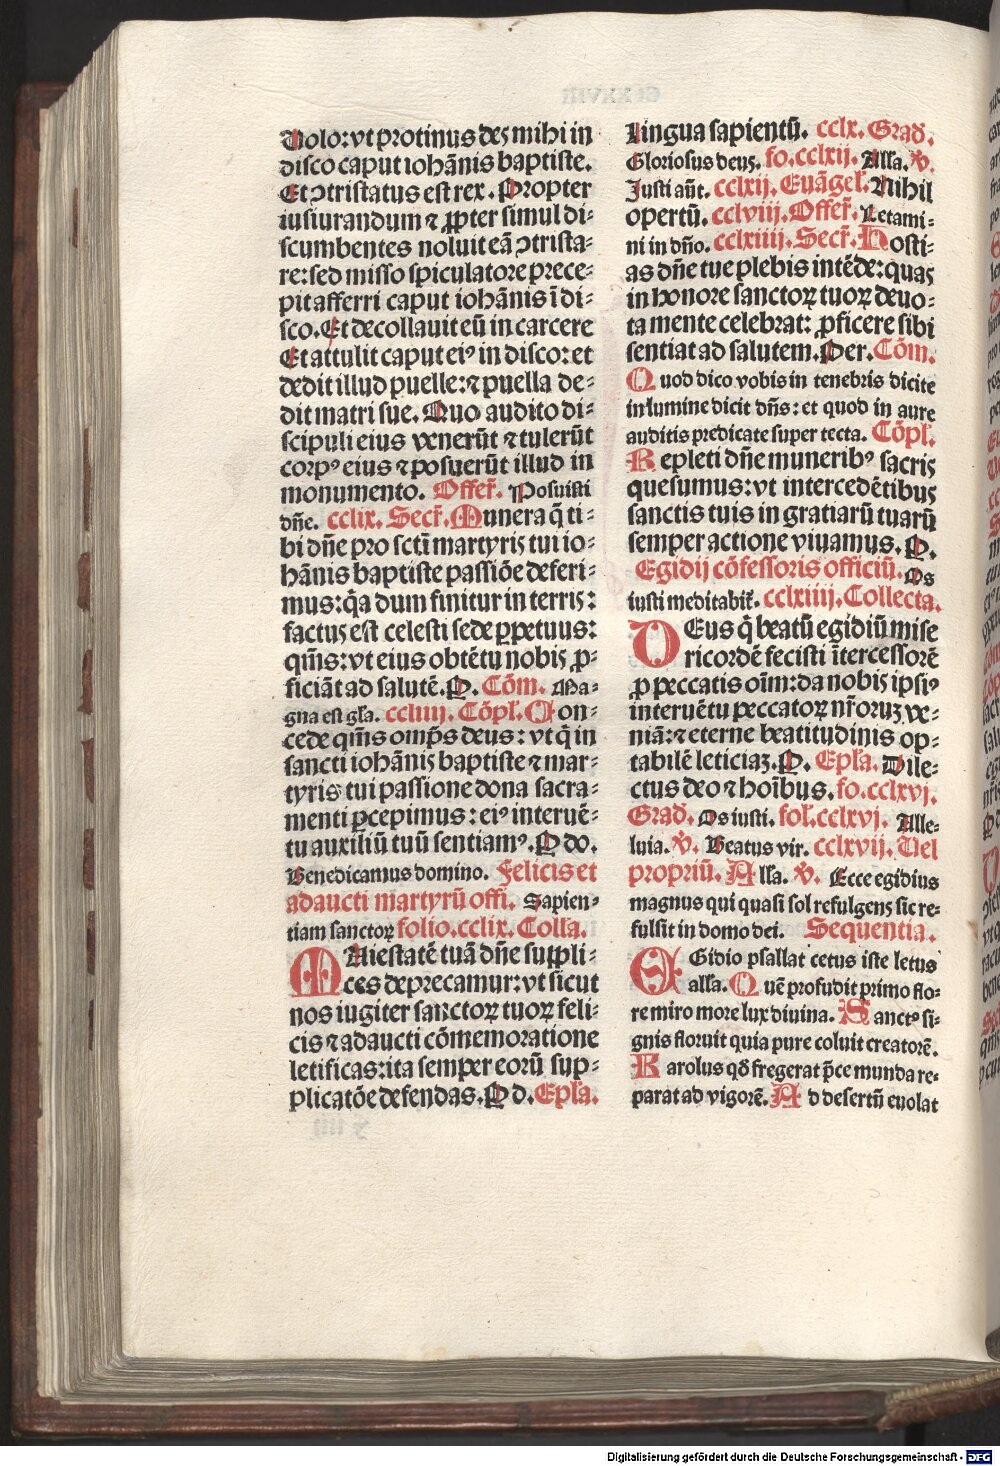 Uolo: vt protinus deʒ mihi in
disco caput iohānis baptiste.
Et ↄtristatus est rex. Propter
iusiurandum ⁊ ꝓpter simul di⸗
scumbentes noluit eā ↄtrista⸗
re: sed misso spiculatore prece⸗
pit afferri caput iohānis ī di⸗
sco. Et decollauit eū in carcere
Et attulit caput eiꝰ in disco: et
dedit illud puelle: ⁊ puella de⸗
dit matri sue. Quo audito di⸗
scipuli eius venerūt ⁊ tulerūt
corpꝰ eius ⁊ posuerūt illud in
monumento. Offer̄. Posuisti
dn̄e. cclix. Secr̄. Munera q̄ ti⸗
bi dn̄e pro scti martyris tui io⸗
hānis baptiste passiōe deferi⸗
mus: q̄a dum finitur in terris:
factus est celesti sede ꝑpetuus:
qm̄s: vt eius obtētu nobis ꝓ⸗
ficiāt ad salutē. P. Cōm. Ma⸗
gna est gl̄a. ccliiij. Cōpl̄. Con⸗
cede qm̄s omp̄s deus: vt q̄ in
sancti iohānis baptiste ⁊ mar⸗
tyris tui passione dona sacra⸗
menti ꝑcepimus: eiꝰ interuē⸗
tu auxiliū tuū sentiamꝰ. P do.
Benedicamus domino. Felicis et
adaucti martyrū offi. Sapien⸗
tiam sanctoꝝ folio. cclix. Coll̄a.
MAiestatē tuā dn̄e suppli⸗
ces deprecamur: vt sicut
nos iugiter sanctoꝝ tuoꝝ feli⸗
cis ⁊ adaucti cōmemoratione
letificas: ita semper eorū sup⸗
plicatōe defendas. P d. Epl̄a.
Lingua sapientū. cclx. Grad̄.
Gloriosus deus. fo. cclxij. All̄a. v̄.
Justi aūt. cclxij. Euāgel̄. Nihil
opertū. cclviij. Offer̄. Letami⸗
ni in dn̄o. cclxiiij. Secr̄. Hosti⸗
as dn̄e tue plebis intēde: quas
in honore sanctoꝝ tuoꝝ deuo⸗
ta mente celebrat: ꝓficere sibi
sentiat ad salutem. Per. Cōm.
Quod dico vobis in tenebris dicite
in lumine dicit dn̄s: et quod in aure
auditis predicate super tecta. Cōpl̄.
Repleti dn̄e muneribꝰ sacris
quesumus: vt intercedētibus
sanctis tuis in gratiarū tuarū
semper actione viuamus. P.
Egidij cōfessoris officiū. Os
iusti meditabit̄. cclxiiij. Collecta.
DEus q̄ beatū egidiū mise
ricordē fecisti ītercessorē
ꝓ peccatis oīm: da nobis ipsiꝰ
interuētu peccatoꝝ nr̄oruʒ ve⸗
niā: ⁊ eterne beatitudinis op⸗
tabilē leticiaʒ. P. Epl̄a. Dile⸗
ctus deo ⁊ hoībus. fo. cclxvj.
Grad̄. Os iusti. fol̄. cclxvj. Alle⸗
luia. v̄. Beatus vir. cclxvij. Uel
propriū. All̄a. v̄. Ecce egidius
magnus qui quasi sol refulgens sic re⸗
fulsit in domo dei. Sequentia.
EGidio psallat cetus iste letus
all̄a. Quē profudit primo flo⸗
re miro more lux diuina. Sanctꝰ si⸗
gnis floruit quia pure coluit creatorē.
Karolus qd̄ fregerat p̄ce munda re⸗
parat ad vigorē. Ad desertū euolat
Digitalisierung gefördert durch die Deutsche Forschungsgemeinschaft - DFG